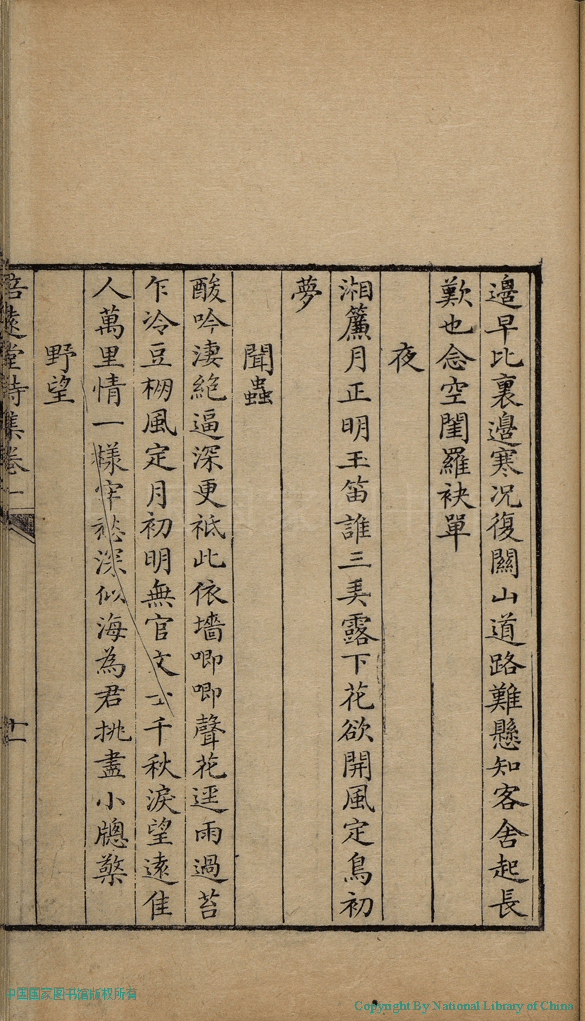 邊早比裏邊寒况復關山道路難懸知客舍起長
歎也念空閨羅袂單
夜
湘簾月正明玉笛誰三弄露下花欲開風定鳥初
夢
聞蟲
酸吟淒絶逼深更祗此依墻唧唧聲花逕雨過苔
乍冷豆棚風定月初明無官文士千秋淚望遠佳
人萬里情一樣牢愁深似海為君挑盡小牕檠
野望
悟遠堂詩集卷一
十一
中国国家图书馆版权所有
Copyright By National Library of China